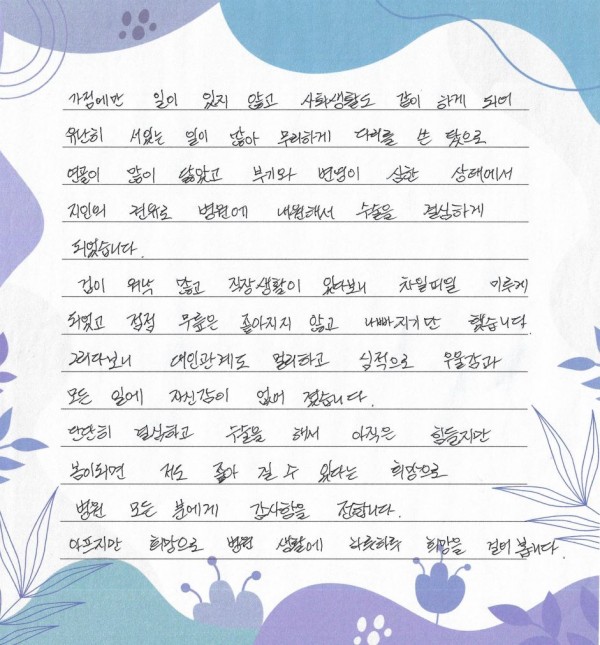 가정에만 일이 있지 않고 사회생활도 같이 하게 되어
유난히 서있는 일이 많아 무리하게 다리를 쓴 탓으로
연골이 많이 닳았고 부기와 변형이 심한 상태에서
지인의 권유로 병원에 내원해서 수술을 결심하게
되었습니다.
겁이 워낙 많고 직장생활이 있다보니 차일피일 미루게
되었고 점점 무릎은 좋아지지 않고 나빠지기만 했습니다.
그러다보니 대인관계도 멀리하고 심적으로 우울감과
모든 일에 자신감이 없어 졌습니다.
단단히 결심하고 수술을 해서 아직은 힘들지만
봄이되면 저도 좋아 질 수 있다는 희망으로
병원 모든 분에게 감사함을 전합니다.
아프지만 희망으로 병원 생활에 하룻하루 희망을 걸어 봅니다.